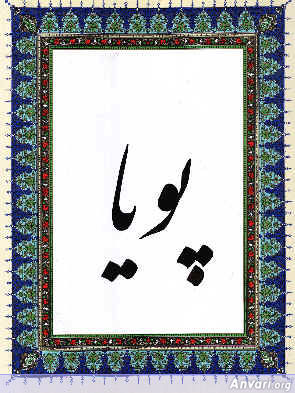 پویا
Anvari.org